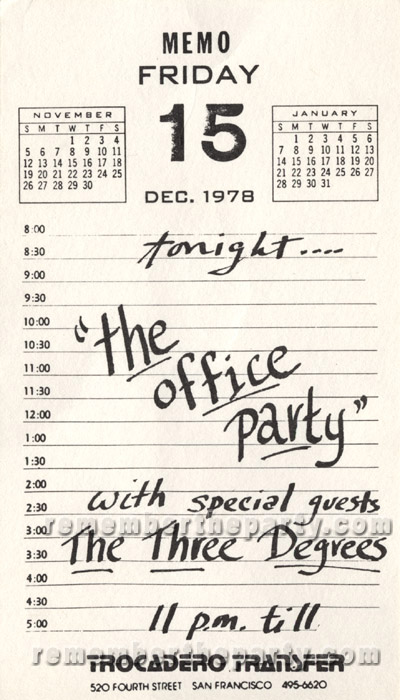 MEMO
FRIDAY
NOVEMBER
S M T W T F S
1 2 3 4
5 6 7 8 9 10 11
12 13 14 15 16 17 18
19 20 21 22 23 24 25
26 27 28 29 30
15
JANUARY
S M T W T F S
1 2 3 4 5 6
7 8 9 10 11 12 13
14 15 16 17 18 19 20
21 22 23 24 25 26 27
28 29 30 31
DEC. 1978
8:00
8:30 tonight....
9:00
9:30
10:00
10:30 "the
11:00 office
11:30
12:00
1:00 party"
1:30
2:00
2:30 with special guests
3:00 remembertheparty.com
3:30 The Three Degrees
4:00
4:30
5:00 11 p.m. till
remembertheparty.com
TROCADERO TRANSFER
520 FOURTH STREET SAN FRANCISCO 495-6620